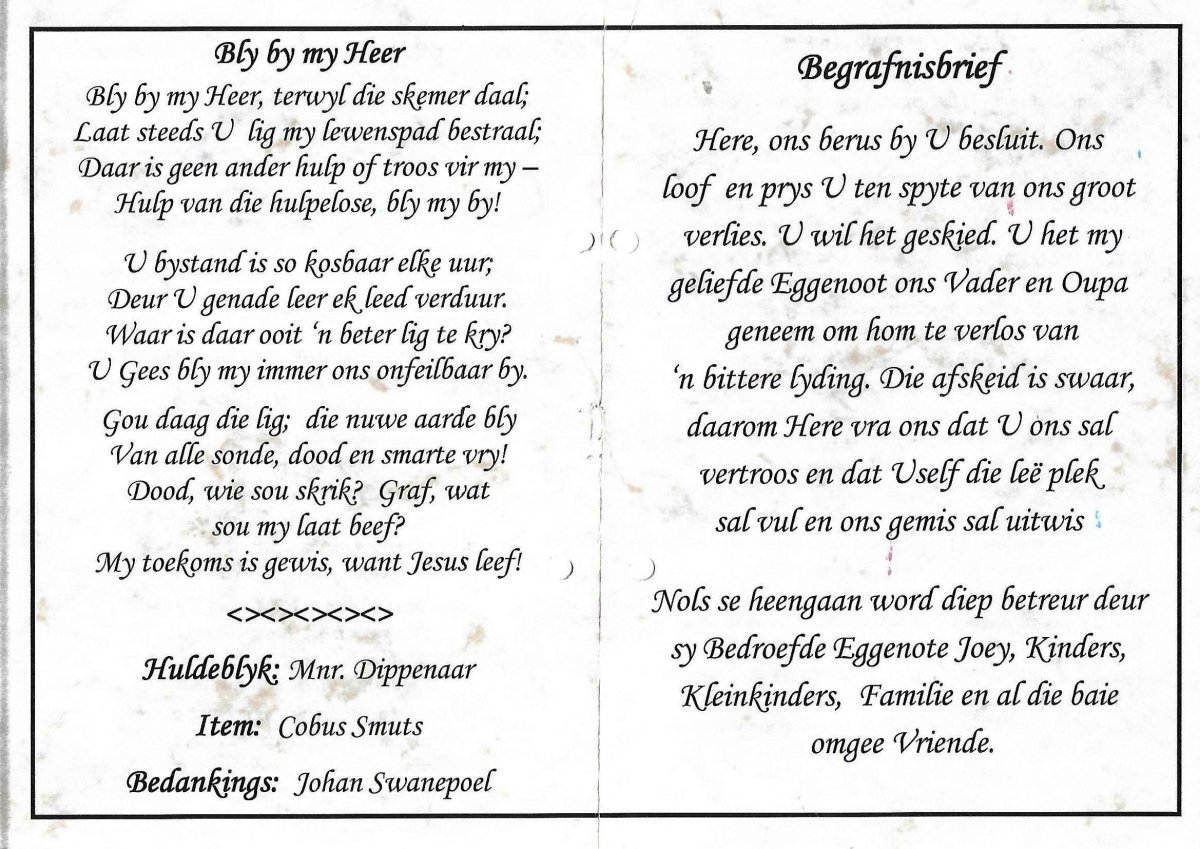 Bly by my Heer
Bly by my Heer, terwyl die skemer daal;
Laat steeds U lig my lewenspad bestraal;
Daar is geen ander hulp of troos vir my –
Hulp van die hulpelose, bly my by!
U bystand is so kosbaar elke uur;
Deur U genade leer ek leed verduur.
Waar is daar ooit ‘n beter lig te kry?
U Gees bly my immer ons onfeilbaar by.
Gou daag die lig; die nuwe aarde bly
Van alle sonde, dood en smarte vry!
Dood, wie sou skrik? Graf, wat
sou my laat beef?
My toekoms is gewis, want Jesus leef!
<><><><><>
Huldeblyk: Mnr. Dippenaar
Item: Cobus Smuts
Bedankings: Johan Swanepoel
Begrafnisbrief
Here, ons berus by U besluit. Ons
loof en prys U ten spyte van ons groot
verlies. U wil het geskied. U het my
geliefde Eggenoot ons Vader en Oupa
geneem om hom te verlos van
‘n bittere lyding. Die afskeid is swaar,
daarom Here vra ons dat U ons sal
vertroos en dat Uself die leë plek
sal vul en ons gemis sal uitwis
Nols se heengaan word diep betreur deur
sy Bedroefde Eggenote Joey, Kinders,
Kleinkinders, Familie en al die baie
omgee Vriende.